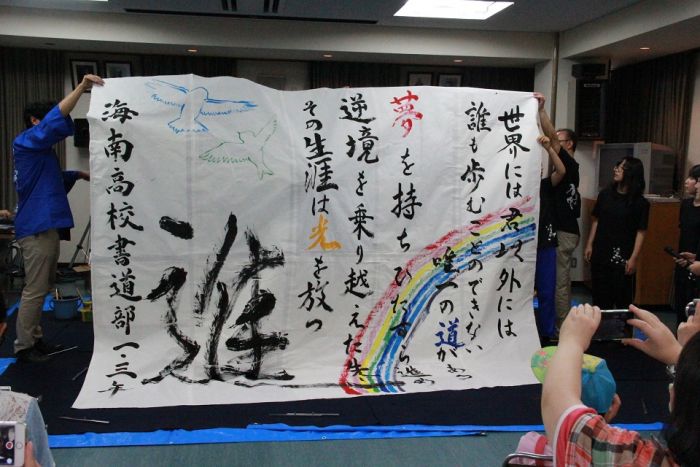 世界には君以外には
誰も歩むことのできない
唯一の道がある
夢を持ちひたすら進め
逆境を乗り越えた先
その生涯は光を放つ
進
海南高校書道部一・三年